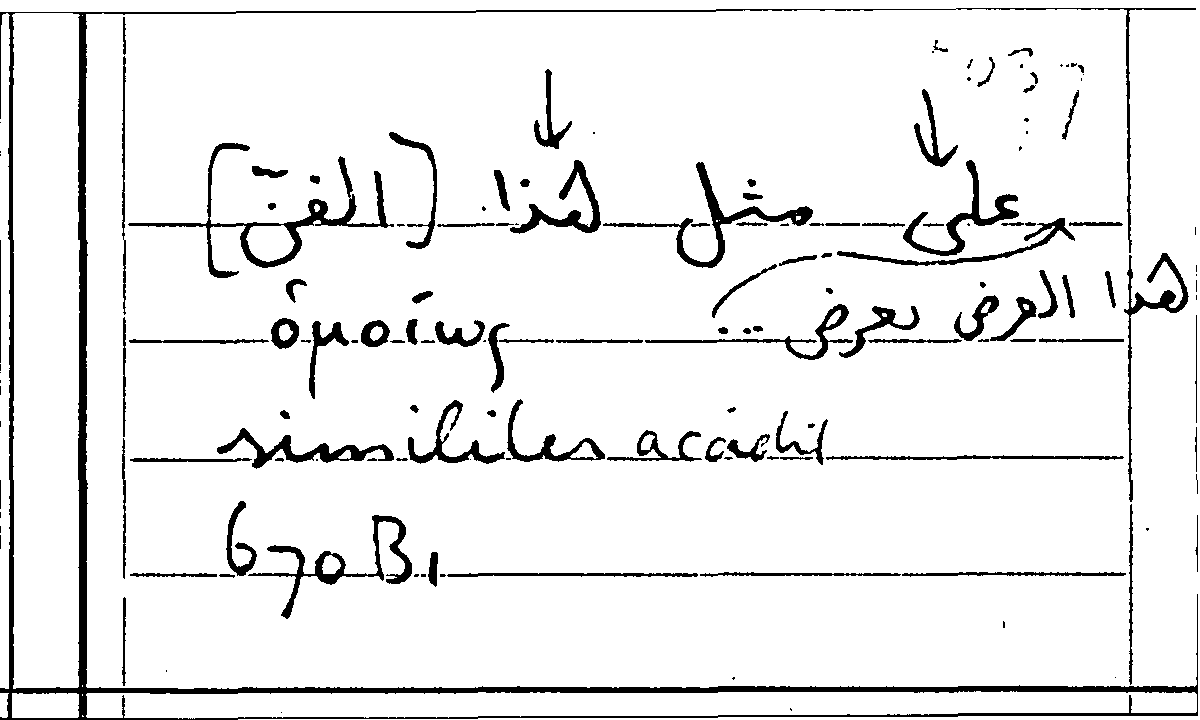 037
على مثل هذا [الفنّ]
هذا العرض يعرض ...
ὁμοίως
similiter accidit
670 B1